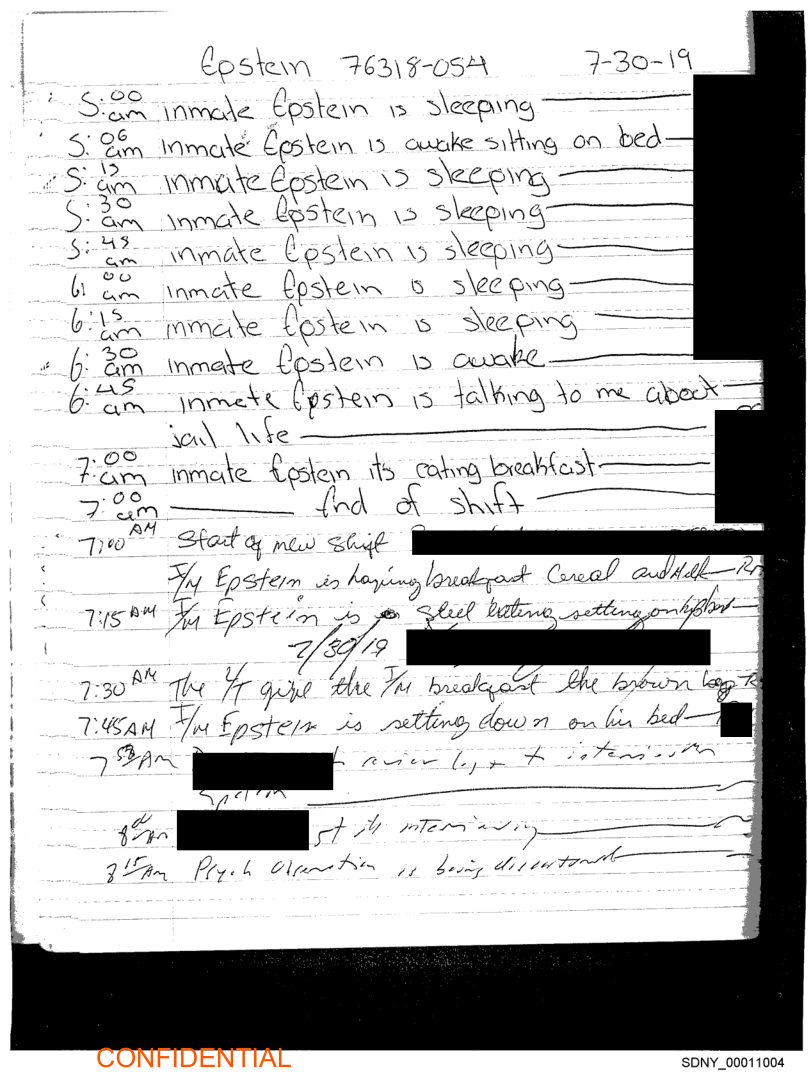 Epstein 76318-054 7-30-19
5:00 am inmate Epstein is sleeping
5:06 am inmate Epstein is awake sitting on bed
5:15 am inmate Epstein is sleeping
5:30 am inmate Epstein is sleeping
5:45 am inmate Epstein is sleeping
6:00 am inmate Epstein is sleeping
6:15 am inmate Epstein is sleeping
6:30 am inmate Epstein is awake
6:45 am inmete Epstein is talking to me about
jail life
7:00 am inmate Epstein its eating breakfast
7:00 am End of shift
7:00 AM Start of new shift
I/M Epstein is having breakfast Cereal and Milk
7:15 AM I/M Epstein is still eating setting on his bed
7/30/19
7:30 AM The I/M breakfast the brown bag
7:45 AM I/M Epstein is setting down on his bed
7 AM review log +
Epstein
8 Am interviewing
8 15 Am Psych Observation is being discontinued
CONFIDENTIAL
SDNY_00011004